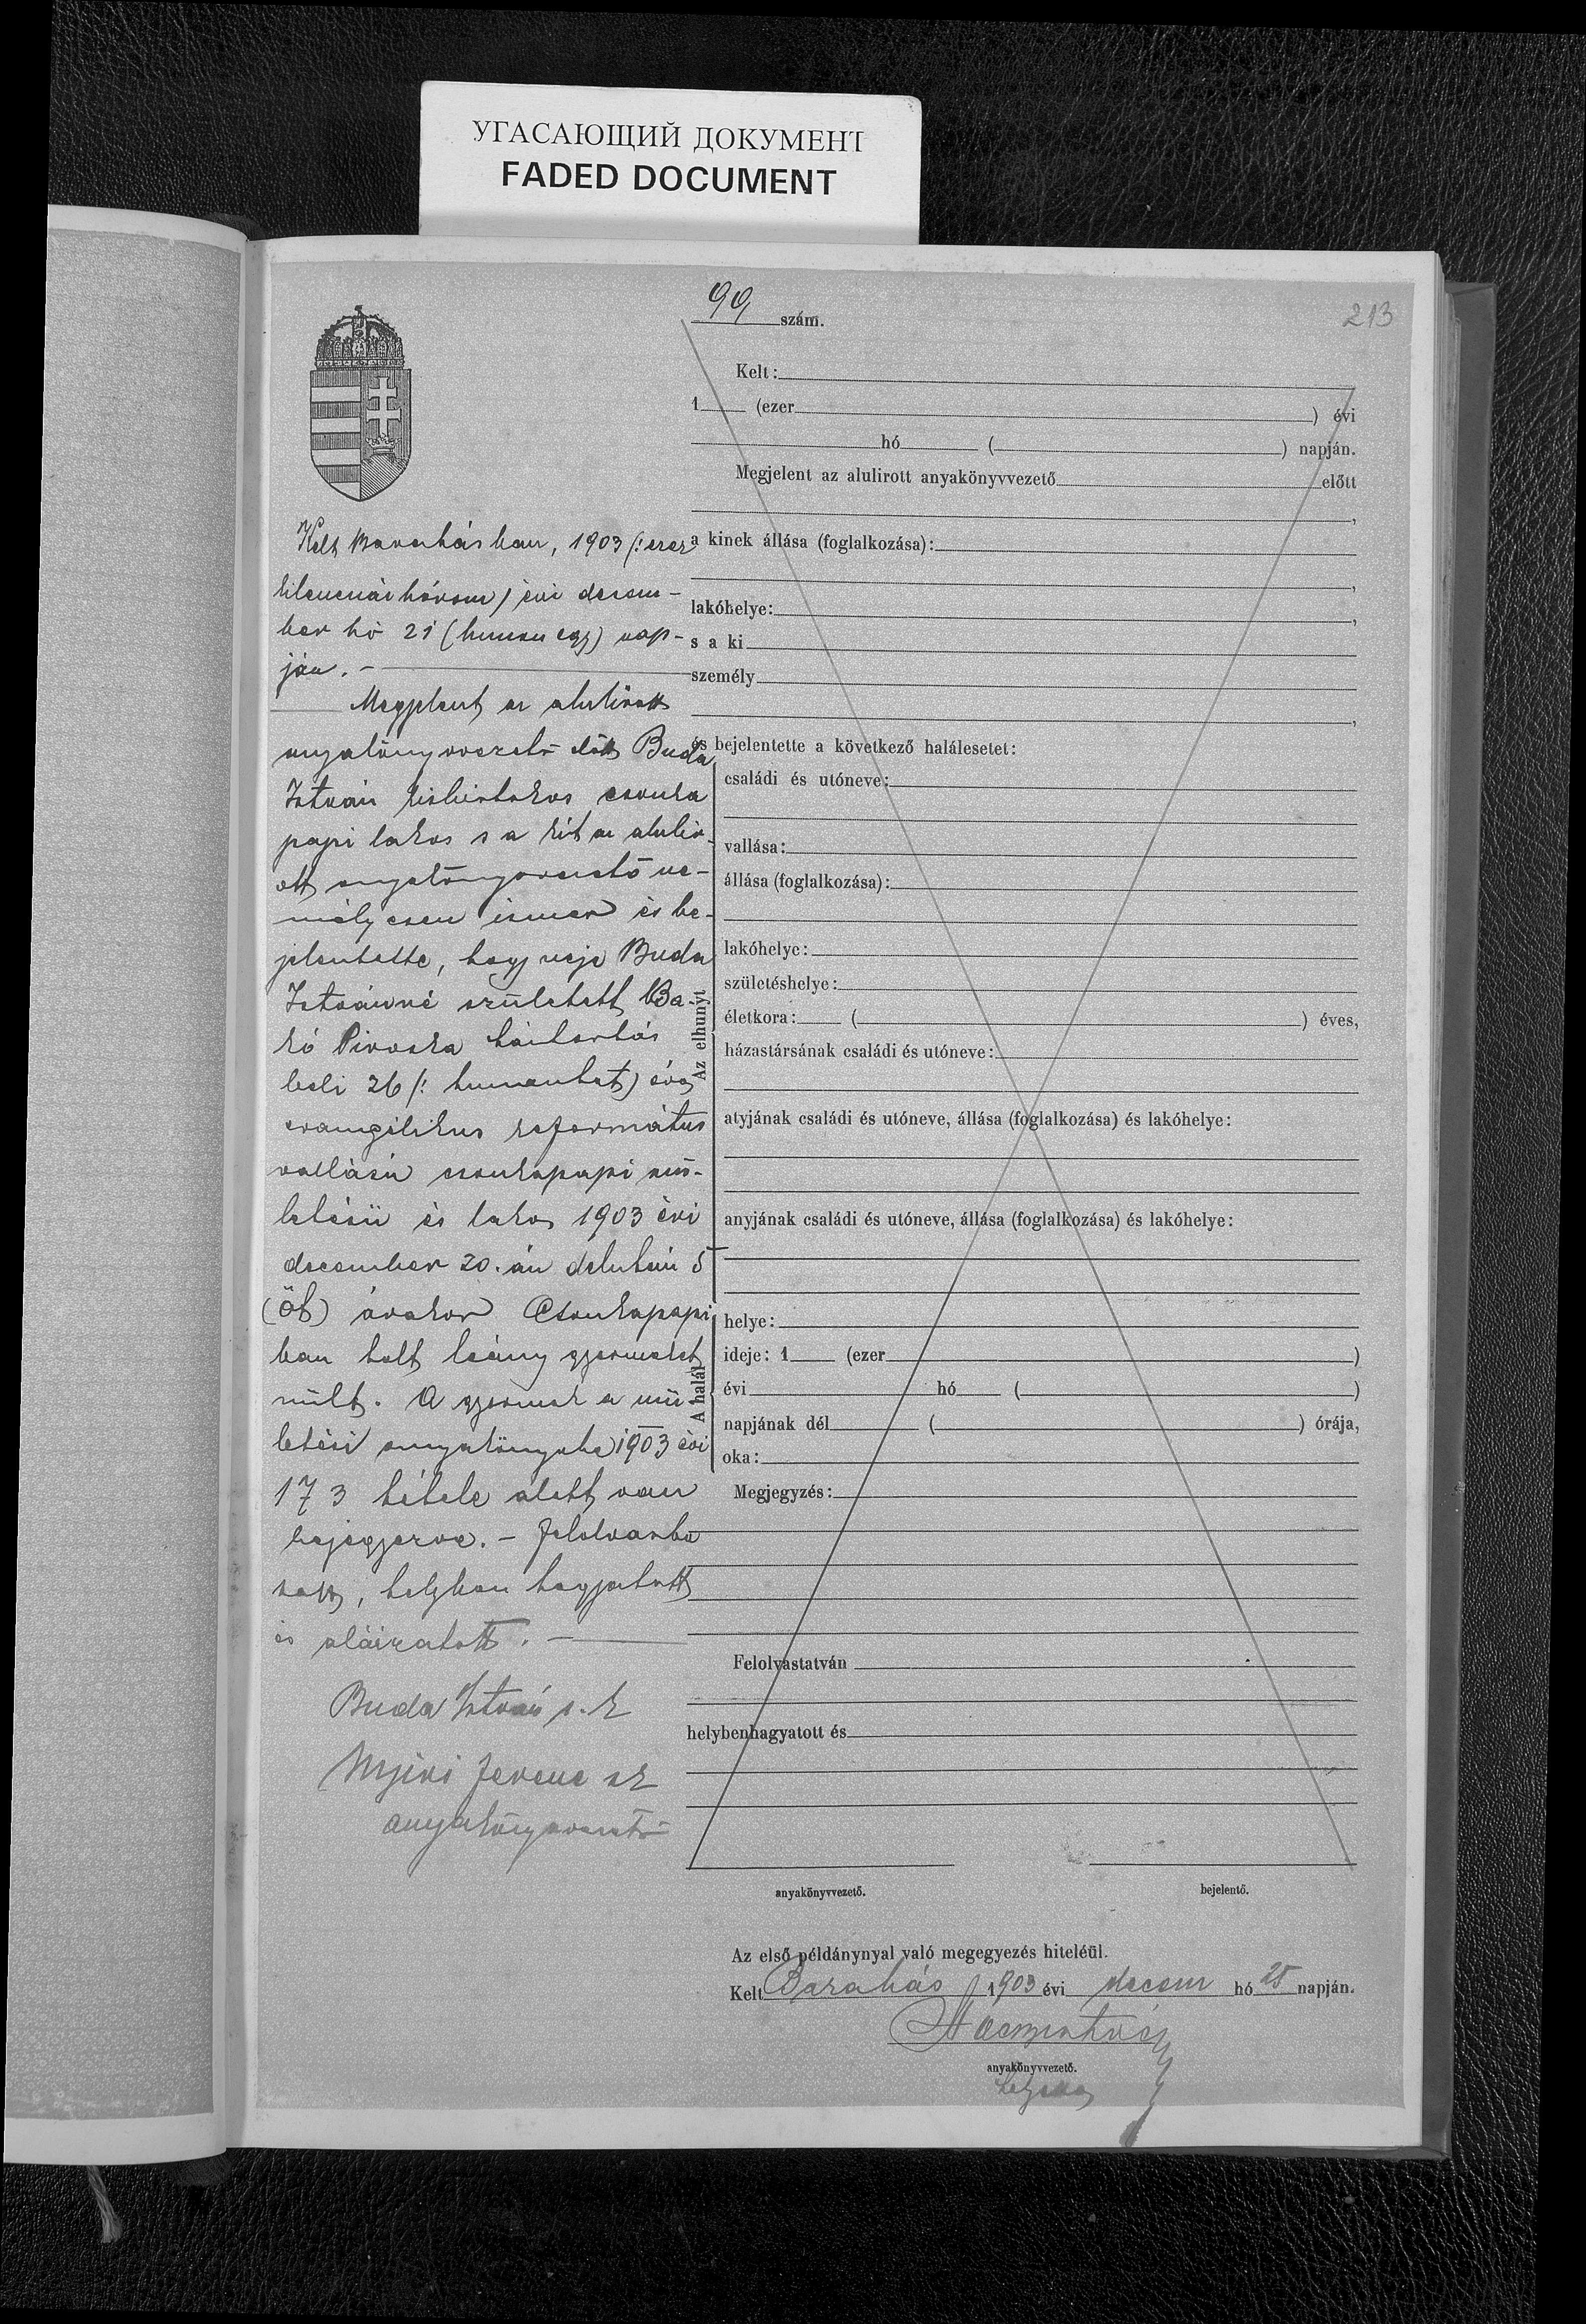 УГАСАЮЩИЙ ДОКУМЕНТ
FADED DOCUMENT
99 szám.
213
Kelt:
1 (ezer ) évi
hó ( ) napján.
Megjelent az alulirott anyakönyvvezető előtt
,
a kinek állása (foglalkozása):
,
lakóhelye: ,
s a ki
személy
,
és bejelentette a következő halálesetet:
Az elhunyt
családi és utóneve:
vallása:
állása (foglalkozása):
lakóhelye:
születéshelye:
életkora: ( ) éves,
házastársának családi és utóneve:
atyjának családi és utóneve, állása (foglalkozása) és lakóhelye:
anyjának családi és utóneve, állása (foglalkozása) és lakóhelye:
A halál
helye:
ideje: 1 (ezer )
évi hó ( )
napjának dél ( ) órája,
oka:
Megjegyzés:
Felolvastatván
helybenhagyatott és
anyakönyvvezető. bejelentő.
Kelt Barabásban, 1903 (: ezer
kilencszáz három) évi decem-
ber hó 21 (huszon egy) nap-
ján. -
Megjelent az alulírott
anyakönyvvezető előtt Buda
István kisbirtokos csonka
papi lakos s a kit az alulir-
ott anyakönyvvezető sze-
mélyesen ismer és be-
jelentette, hogy neje Buda
Istvánné született Ba-
kó Piroska háztartás
beli 26 (: huszonhat) éves
evangélikus református
vallású csonkapapi szü-
letésü és lakos 1903 évi
december 20.-án délután 5
(öt) órakor Csonkapapi
ban holt leány gyermeket
szült. A gyermek a szü-
letési anyakönyvbe 1903 évi
173 tétele alatt van
bejegyezve. - Felolvasta
tott, helyben hagyatott
és aláiratott. -
Buda István s. k
Nyiri Ferenc sk
anyakönyvvezető
Az első példánynyal való megegyezés hiteléül.
Kelt Barabás 1903 évi decem hó 25 napján.
anyakönyvvezető.